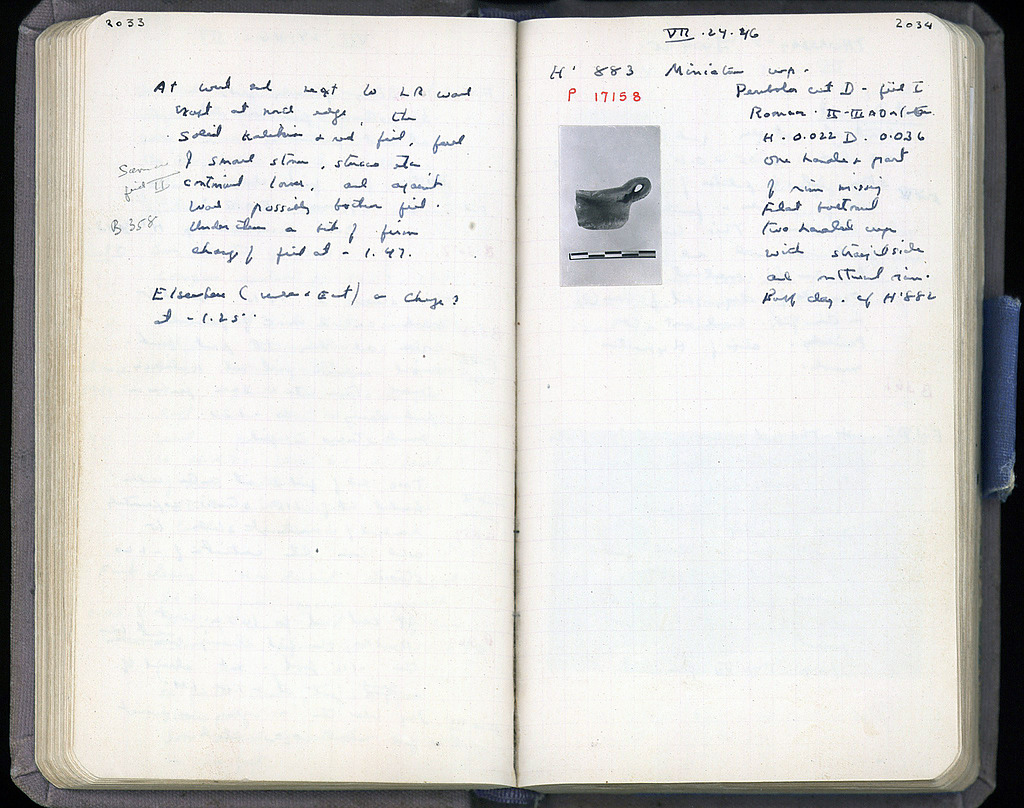 2033
At west end next to LR wall
except at north edge, the
solid and red fill, full
of small stone, stucco etc
continued lower, and against
wall possibly bothros fill.
fill II
B 358
Under them a bit of firm
change of fill at - 1.47.
Elsewhere (west & East) a change?
at - 1.25
2034
VII.24.46
H' 883 Miniature cup.
P 17158
Peribolos cut D - fill I
Roman. II-III AD
H. 0.022 D. 0.036
one handle & part
of rim missing
Flat bottomed
two handled cup
with straight side
and outturned rim.
Buff clay. cf H'882